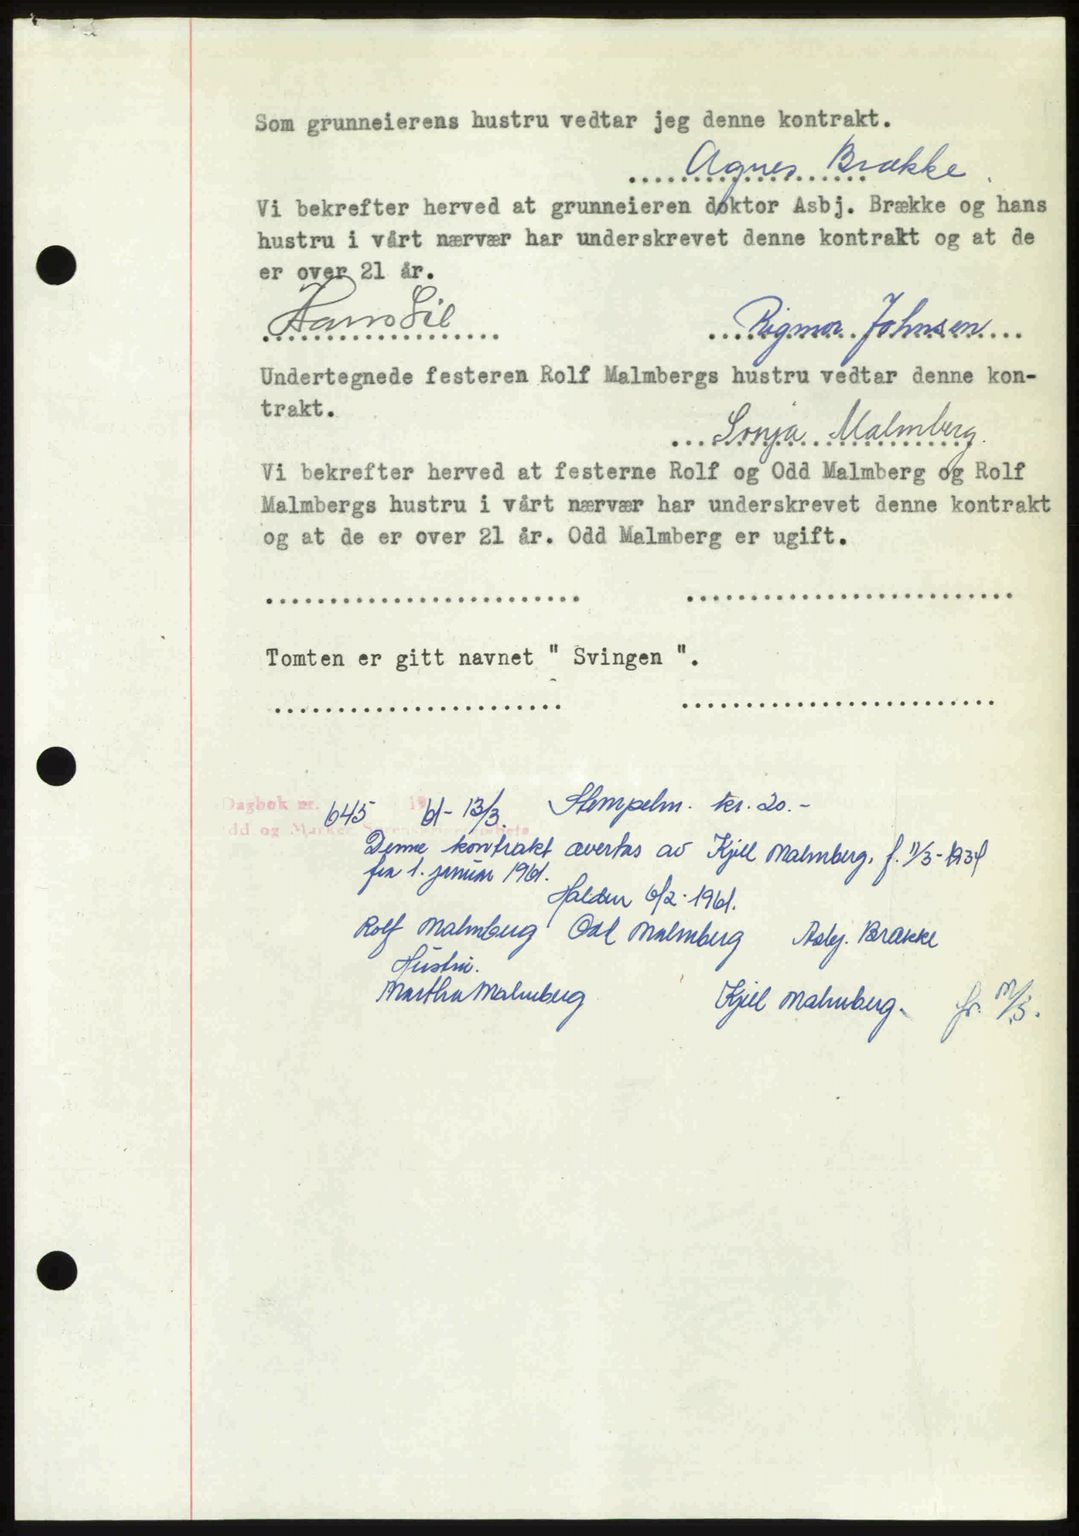 Som grunneierens hustru vedtar jeg denne kontrakt.
Agnes Brække
Vi bekrefter herved at grunneieren doktor Asbj. Brække og hans
hustru i vårt nærvær har underskrevet denne kontrakt og at de
er over 21 år.
Hans Lie Rigmor Johnsen
Undertegnede festeren Rolf Malmbergs hustru vedtar denne kon-
trakt.
Sonja Malmberg
Vi bekrefter herved at festerne Rolf og Odd Malmberg og Rolf
Malmbergs hustru i vårt nærvær har underskrevet denne kontrakt
og at de er over 21 år. Odd Malmberg er ugift.
Tomten er gitt navnet " Svingen ".
Dagbok nr. 645 19 61 - 13/3. Stempelm. kr. 20.-
Idd og Marker
Denne kontrakt overtas av Kjell Malmberg, f. 11/3-1934
fra 1. januar 1961.
Halden 6/2-1961.
Rolf Malmberg Odd Malmberg Asbj. Brække
Hustru.
Martha Malmberg Kjell Malmberg.